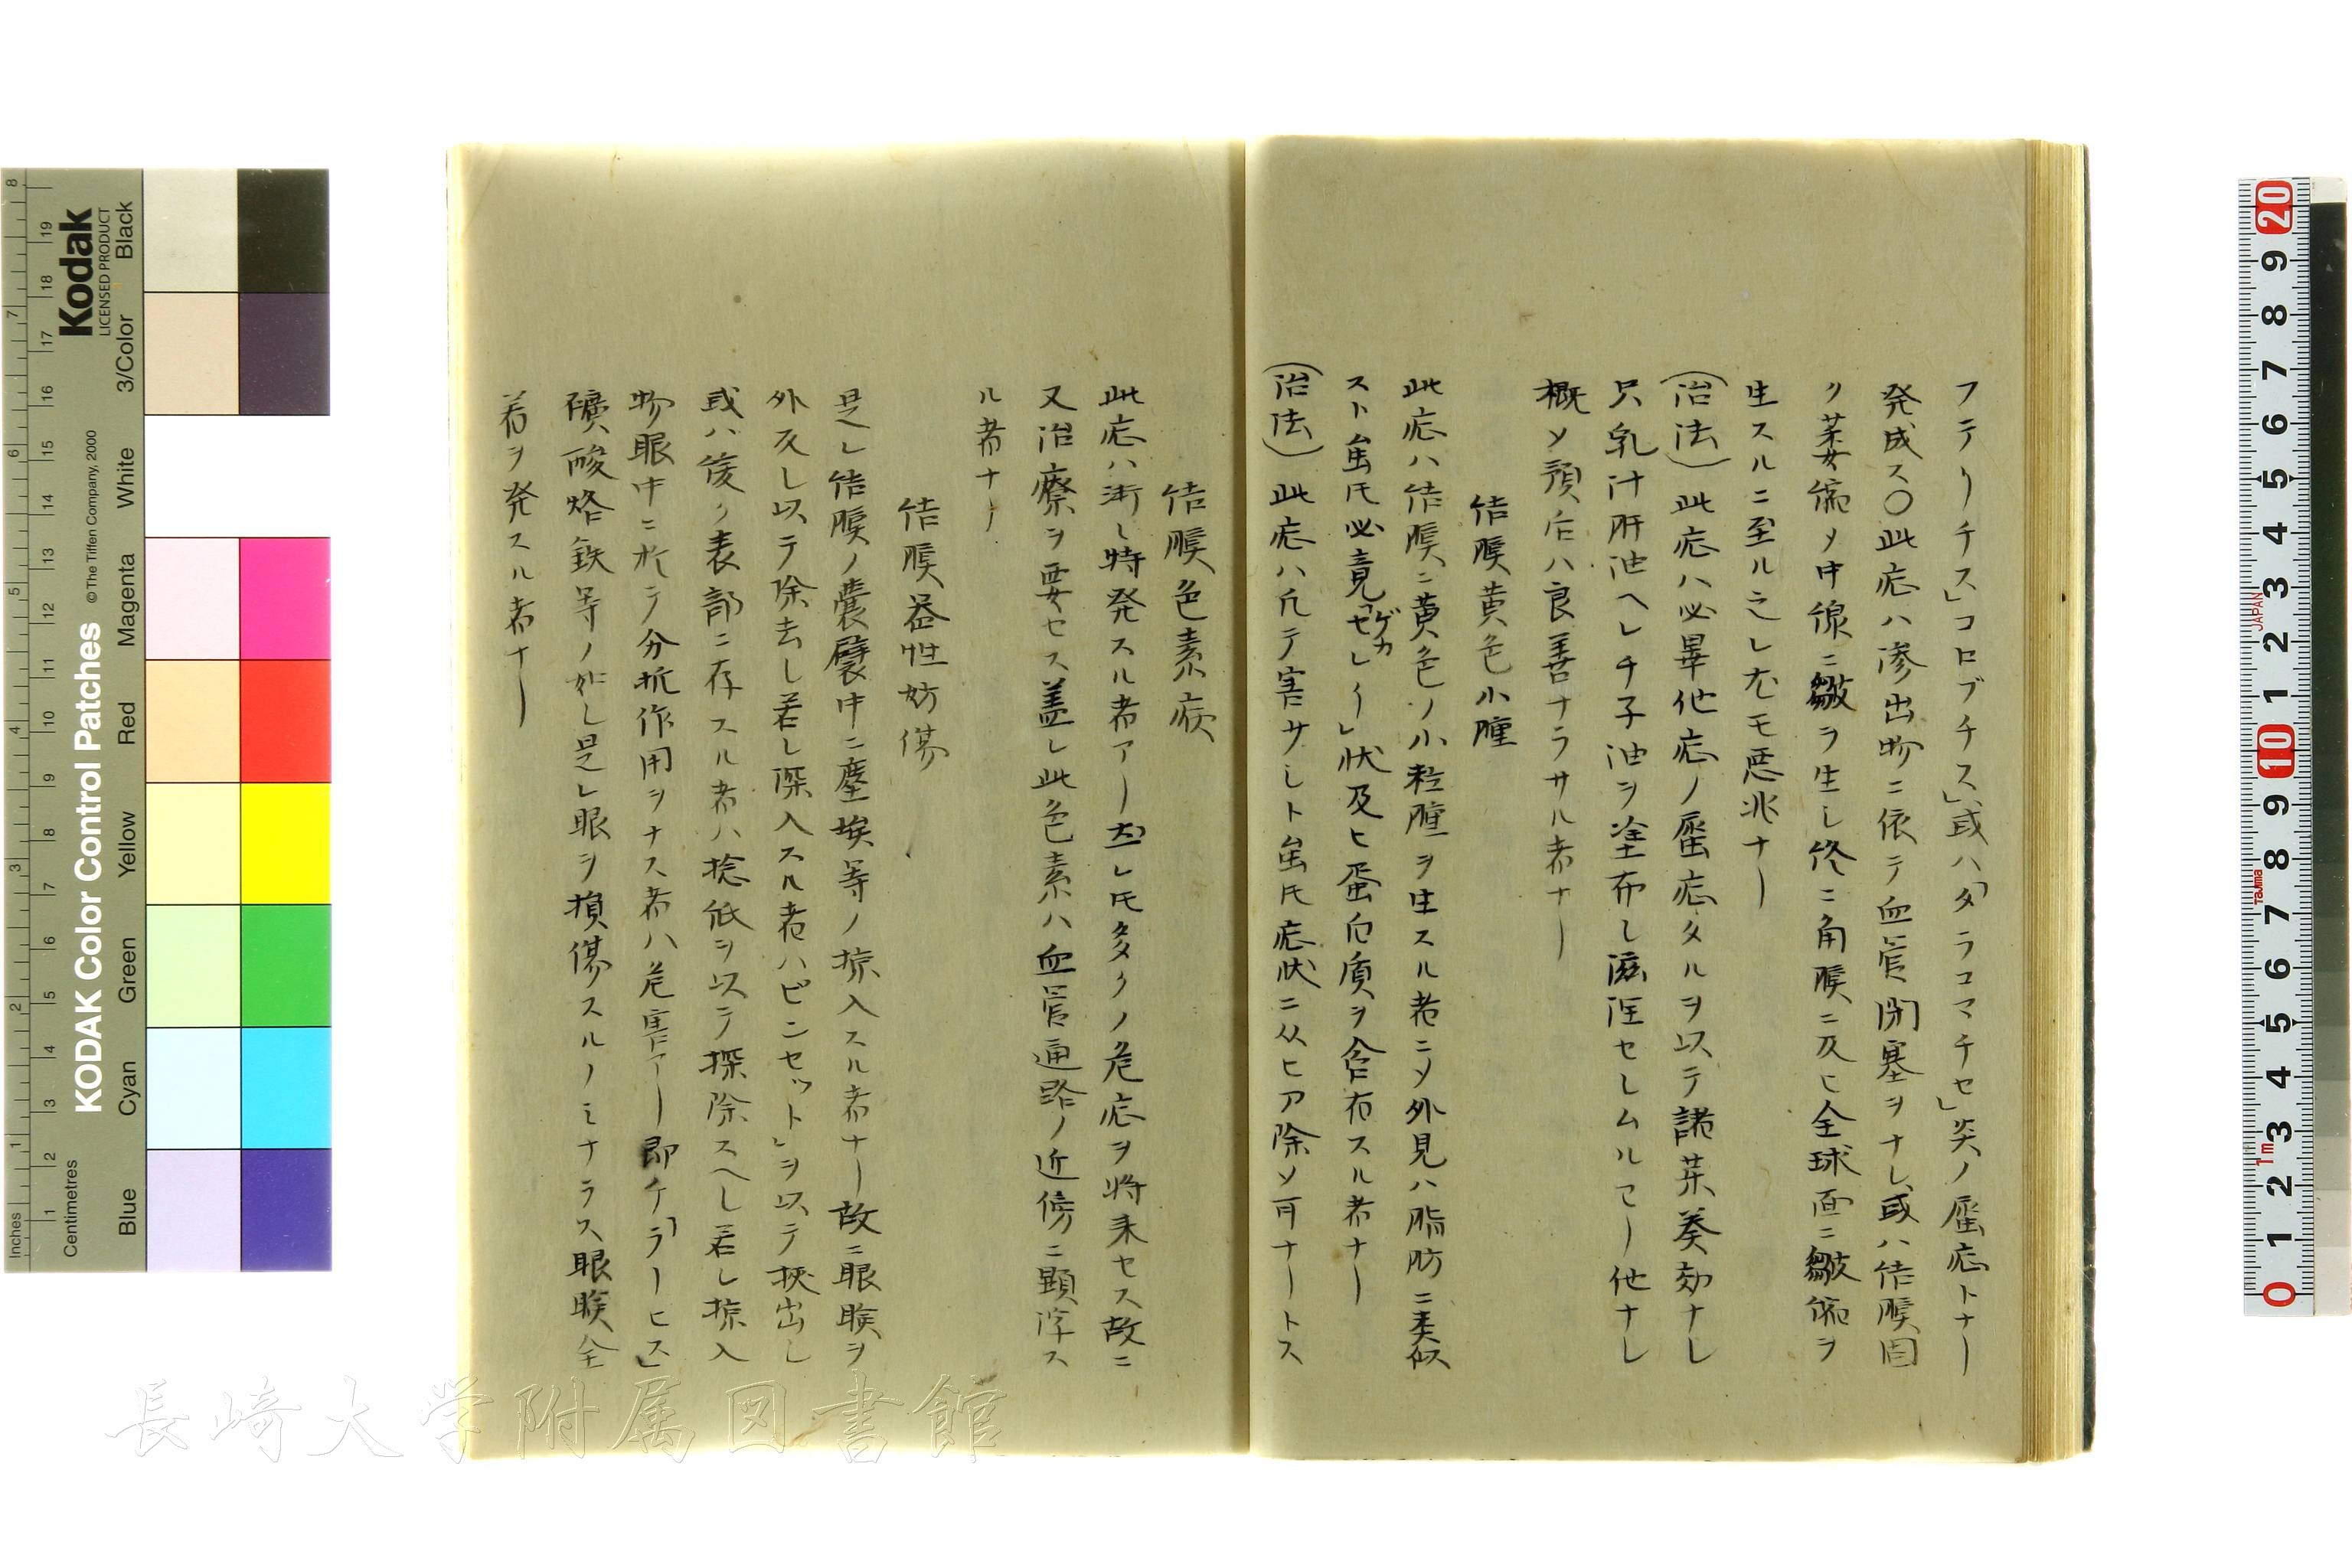 フテリーチス」コロブチス」或ハ「タラコマチセ」炎ノ䘌症トナー
発成ス〇此症ハ滲出物ニ依テ血管閉塞ヲナシ或ハ結膜固
ク萎縮メ中線ニ皺ヲ生シ終ニ角膜ニ及ヒ全球面ニ皺縮ヲ
生スルニ至ル之レ尤モ悪兆ナー
(治法)此症ハ必畢他症ノ䘌症タルヲ以テ諸薬奏効ナシ
只乳汁肝油ヘレチ子油ヲ塗布し滋 セしムルヿー他ナし
概ソ預后ハ良善ナラサル者ナー
結膜黄色小腫
此症ハ結膜ニ黄色ノ小粒腫ヲ生スル者ニメ外見ハ脂肪ニ類似
スト虽氏必竟 状及ヒ蛋白質ヲ含有スル者ナー
(治法)此症ハ凡テ害サしト虽氏症状ニ从ヒ刀除ソ可ナートス
結膜色素症
此症ハ 特発スル者アー 氏多クノ危症ヲ将来セス故ニ
又治療ヲ要セス蓋し此色素ハ血管通路ノ近傍ニ顕浮ス
ル者ナー
結膜器性妨傷
是レ結膜ノ嚢襞中ニ塵埃等ノ掠入スル者ナー故ニ眼瞼ヲ
外反し以テ除去し若し深入スル者ハピンセット」ヲ以テ挟出し
或ハ後ノ表部ニ存スル者ハ捻紙ヲ以テ探除スヘし若し掠入
物眼中ニ於テ分析作用ヲナス者ハ危害アー即チ「ラーヒス」
礦酸烙鉄等ノ如し是レ眼ヲ損傷スルノミナラス眼瞼全
着ヲ発スル者ナー
Kodak
LICENSED PRODUCT
KODAK Color Control Patches
© The Tiffen Company, 2000
Inches
Centimetres
Blue
Cyan
Green
Yellow
Red
Magenta
White
3/Color
Black
JAPAN
Tajima
1m
長崎大学附属図書館